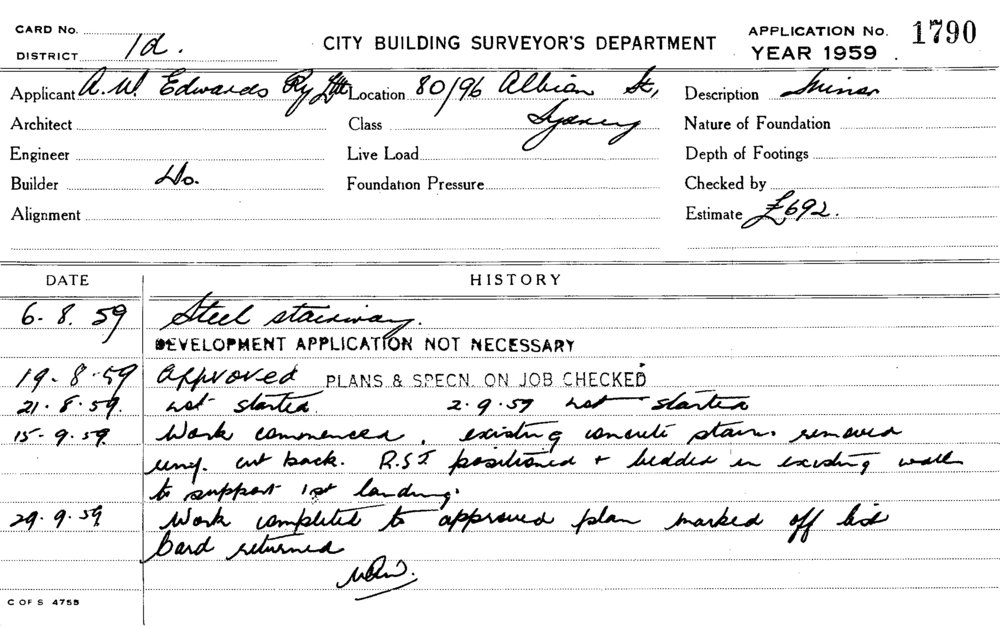 CARD No.
DISTRICT 1d.
CITY BUILDING SURVEYOR'S DEPARTMENT
APPLICATION No. 1790
YEAR 1959
Applicant A. W. Edwards Pty Ltd Location 80/96 Albion St, Description Minor
Architect Class Sydney Nature of Foundation
Engineer Live Load Depth of Footings
Builder Do. Foundation Pressure Checked by
Alignment Estimate £692.
DATE HISTORY
6. 8. 59 Steel stairway.
DEVELOPMENT APPLICATION NOT NECESSARY
19. 8. 59 Approved PLANS & SPECN. ON JOB CHECKED
21. 8. 59. not started 2. 9. 59 not started
15. 9. 59. Work commenced, existing concrete stairs removed
cut back. R.S.J. positioned + bedded in existing walls
to support 1st landing.
29. 9. 59 Work completed to approved plan marked off list
Card returned
C OF S 4758